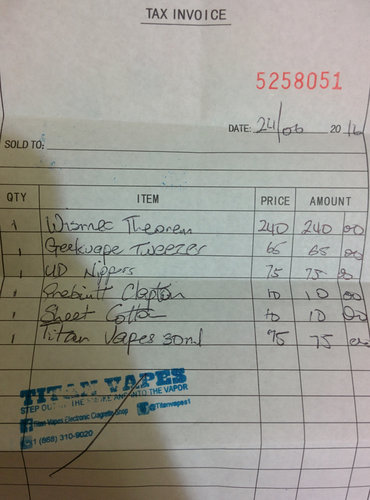 TAX INVOICE
5258051
DATE: 24/06 2016
SOLD TO:
QTY ITEM PRICE AMOUNT
1 Wismec Theorem 240 240 00
1 Geekvape Tweezer 65 65 00
1 UD Nippers 75 75 00
1 Prebuilt Clapton 10 10 00
1 Sheet Cotton 10 10 00
1 Titan Vapes 30ml 75 75 00
TITAN VAPES
STEP OUT OF THE SMOKE AND INTO THE VAPOR
Titan Vapes Electronic Cigarette Shop @Titanvapes1
1 (868) 310-9020